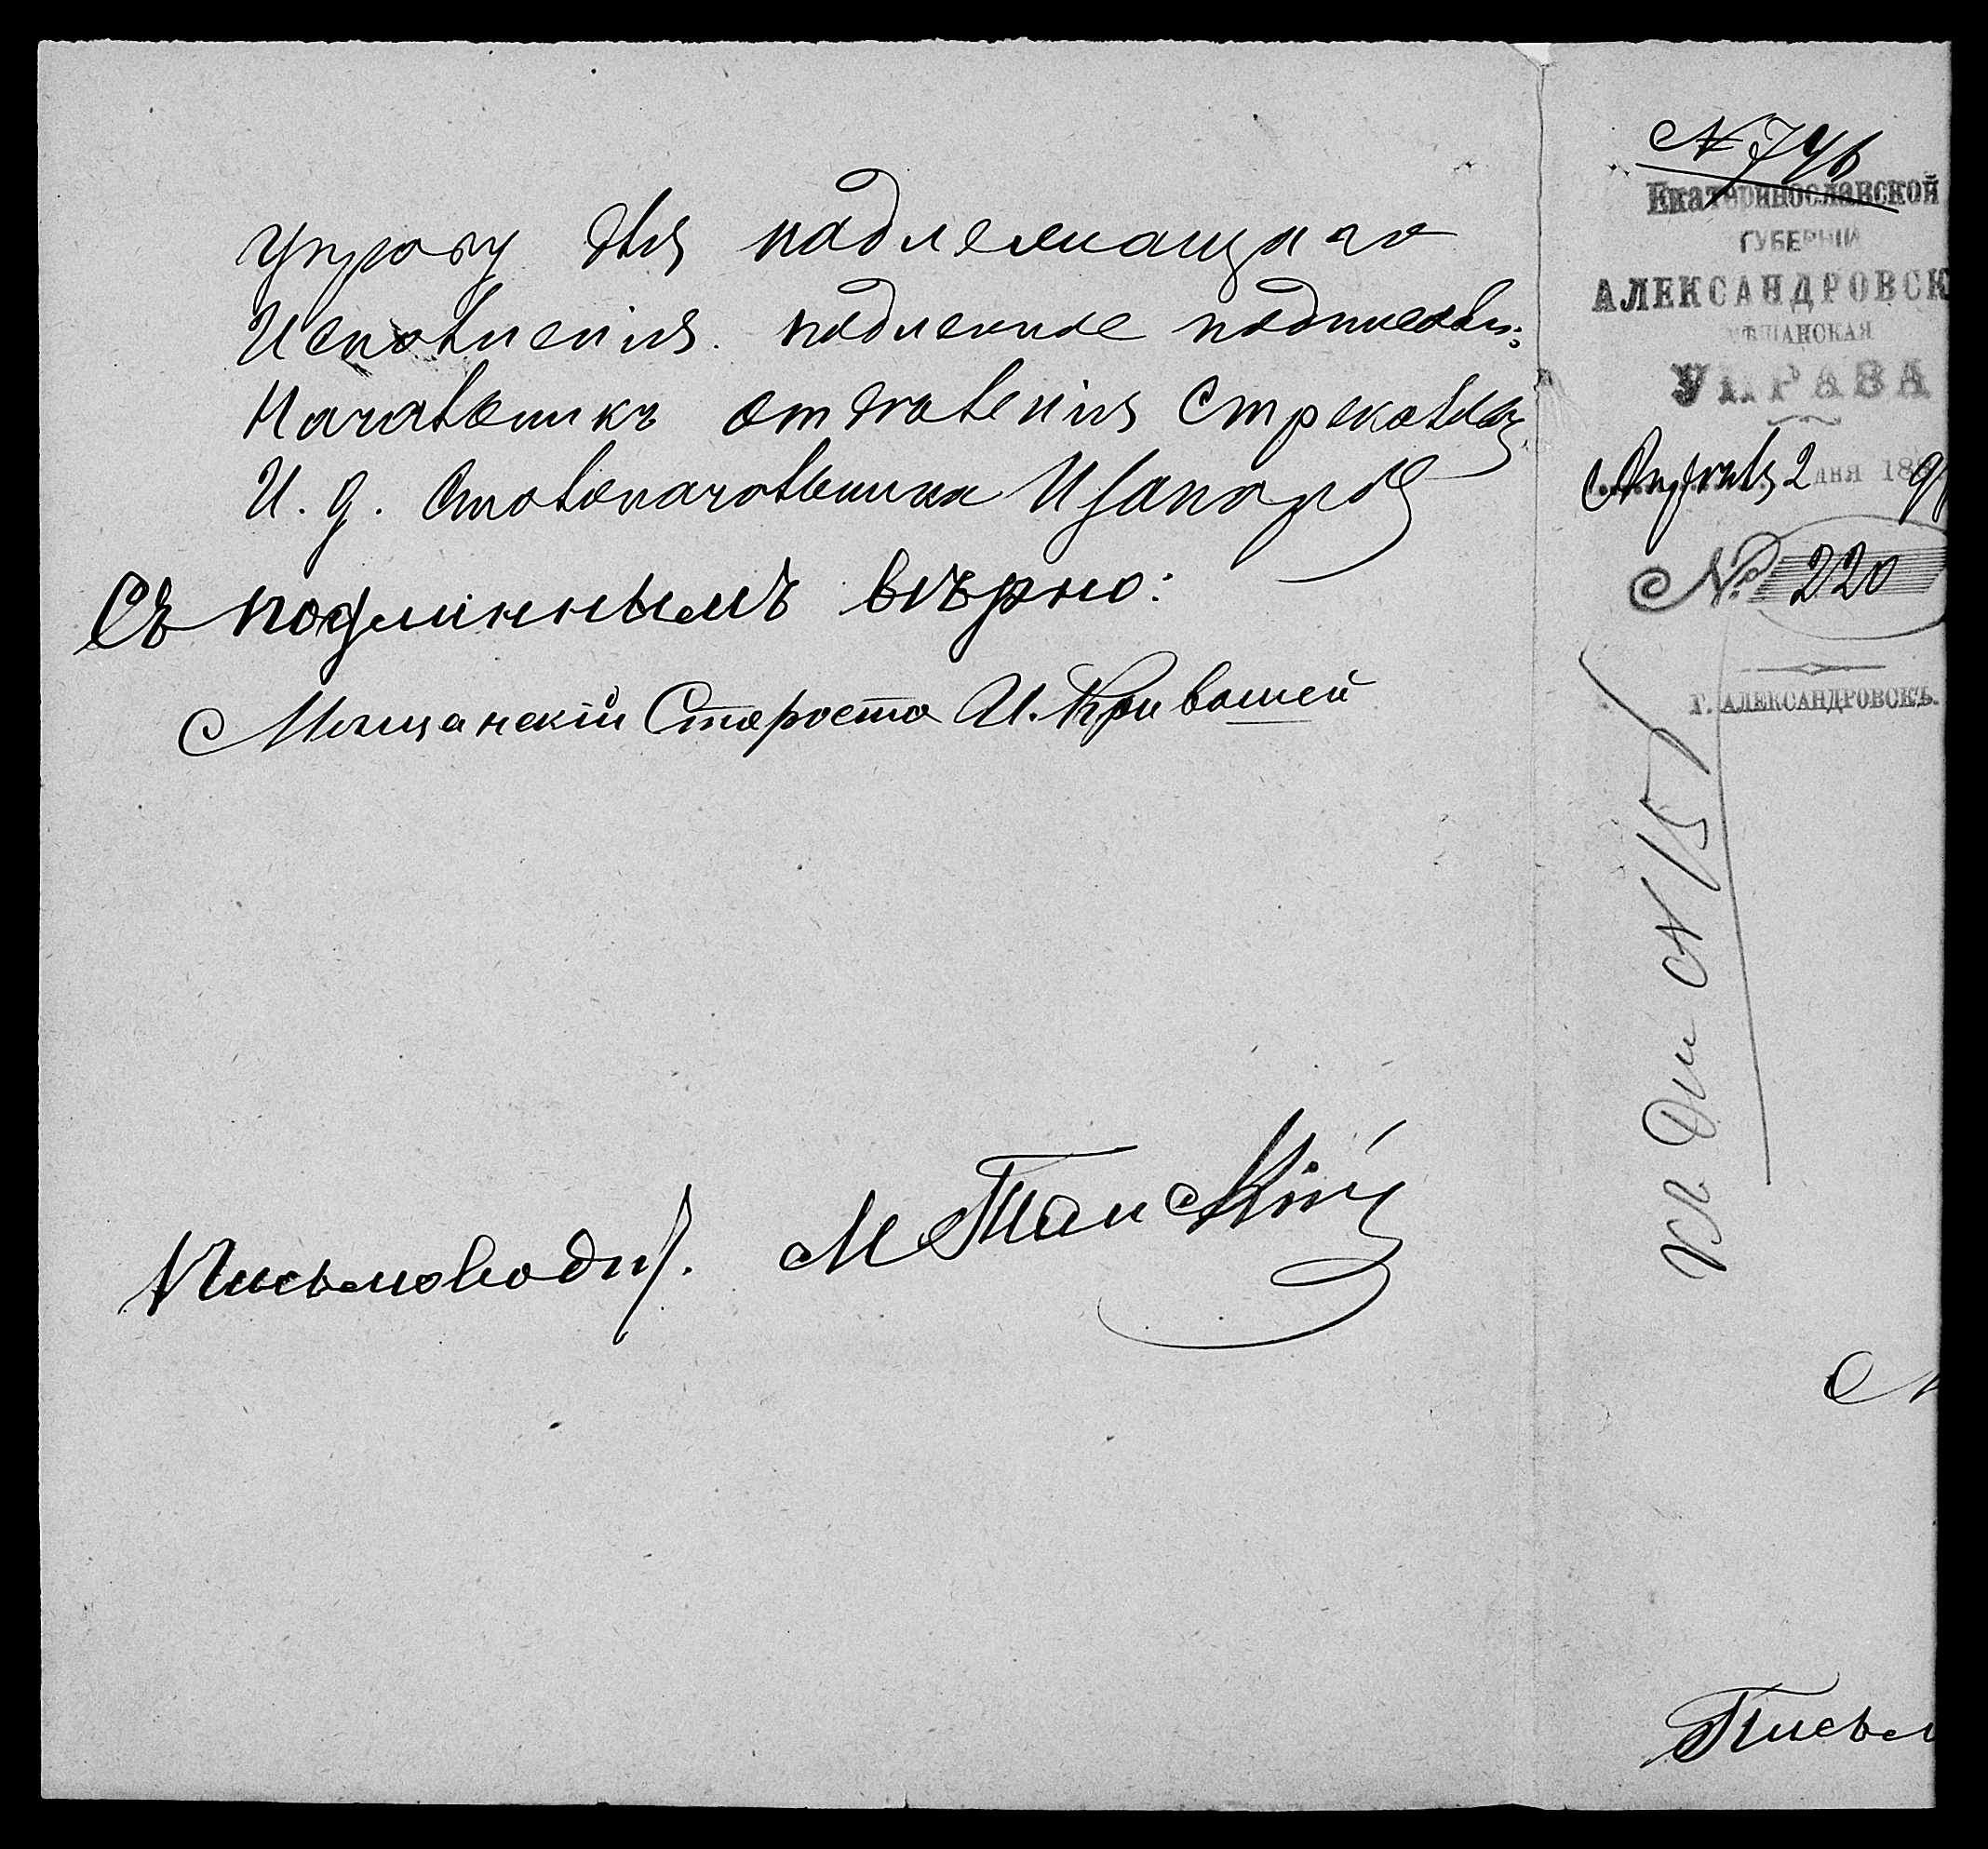 Управу для надлежащаго
Исполненія. подленное подписали:
Начальникъ отделенія Стрекаловъ
И. д. Столоначальника
Съ подлиннымъ вѣрно:
Мѣщанскій Староста И. Кривошей
Письмовод.
М
№ 746
Екатеринославской
ГУБЕРНІИ
АЛЕКСАНДРОВСК
МѢЩАНСКАЯ
УПРАВА
Апреля 2 дня 189
№ 220
Г. АЛЕКСАНДРОВСКЪ.
Письм